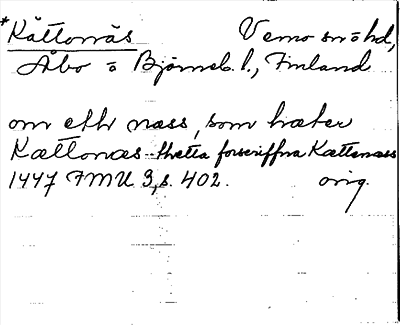 *Kättonäs Vemo sn o hd,
Åbo o Björneb. l., Finland
om eth næss, som hæter
Kættonæs thetta forscriffna Kættenæss
1447 FMU 3, s. 402. orig.